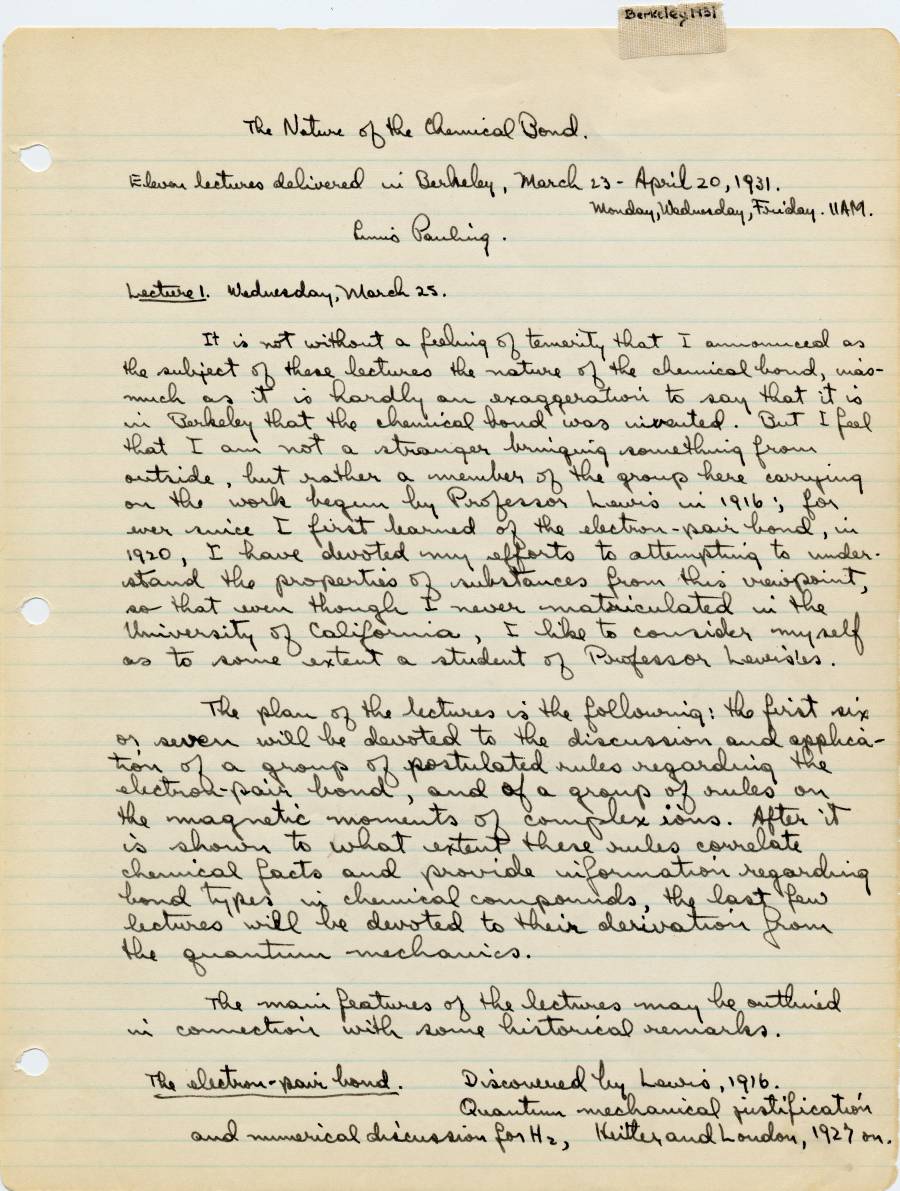 Berkeley 1931
The Nature of the Chemical Bond.
Eleven lectures delivered in Berkeley, March 23 - April 20, 1931.
Monday, Wednesday, Friday. 11AM.
Linus Pauling.
Lecture 1. Wednesday, March 25.
It is not without a feeling of temerity that I announced as
the subject of these lectures the nature of the chemical bond, inas-
much as it is hardly an exaggeration to say that it is
in Berkeley that the chemical bond was invented. But I feel
that I am not a stranger bringing something from
outside, but rather a member of the group here carrying
on the work begun by Professor Lewis in 1916; for
ever since I first learned of the electron-pair bond, in
1920, I have devoted my efforts to attempting to under-
stand the properties of substances from this viewpoint,
so that even though I never matriculated in the
University of California, I like to consider myself
as to some extent a student of Professor Lewis'es.
The plan of the lectures is the following: the first six
or seven will be devoted to the discussion and applica-
tion of a group of postulated rules regarding the
electron-pair bond, and of a group of rules on
the magnetic moments of complex ions. After it
is shown to what extent these rules correlate
chemical facts and provide information regarding
bond types in chemical compounds, the last few
lectures will be devoted to their derivation from
the quantum mechanics.
The main features of the lectures may be outlined
in connection with some historical remarks.
The electron-pair bond. Discovered by Lewis, 1916.
Quantum mechanical justification
and numerical discussion for H2, Heitler and London, 1927 on.